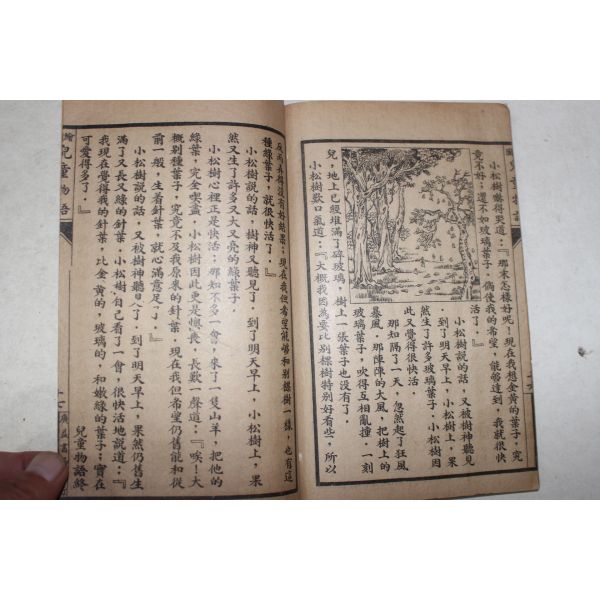 兒童物語
小松樹嚇得哭道：『那末怎樣好呢！現在我想金黃的葉子，究
竟不好；還不如玻璃葉子．倘使我的希望，能够達到，我就很快
活了．』
小松樹說的話，又被樹神聽見
了．到了明天早上，小松樹上，果
然生了許多玻璃葉子．小松樹因
此又覺得很快活．
那知隔了一天，忽然起了狂風
暴風，那陣陣的大風，把樹上的
玻璃葉子，吹得互相亂撞．一刻
兒，地上已經堆滿了碎玻璃，樹上一張葉子也沒有了．
小松樹歎口氣道：『大概我因為要比别棵樹特别好看些，所以
反而弄得沒有好結果；現在我但希望能够和别棵樹一樣，也有這
種綠葉子，就很快活了．』
小松樹說的話，樹神又聽見了．到了明天早上，小松樹上，果
然又生了許多又大又亮的綠葉子．
小松樹心裡正是快活；那知不多一會，來了一隻山羊，把他的
綠葉，完全喫盡．小松樹因此更是懊喪，長歎一聲道：『唉！大
概别種葉子，究竟不及我原來的針葉．現在我但希望仍舊能和從
前一般，生着針葉，就心滿意足了．』
小松樹說的話，又被樹神聽見了．到了明天早上，果然仍舊生
滿了又長又綠的針葉．小松樹自己看了一會，很快活地說道：『
我現在覺得我的針葉，比金黃的，玻璃的，和嫩綠的葉子；實在
可愛得多了．』
兒童物語終
繪
兒童物語
廣益書